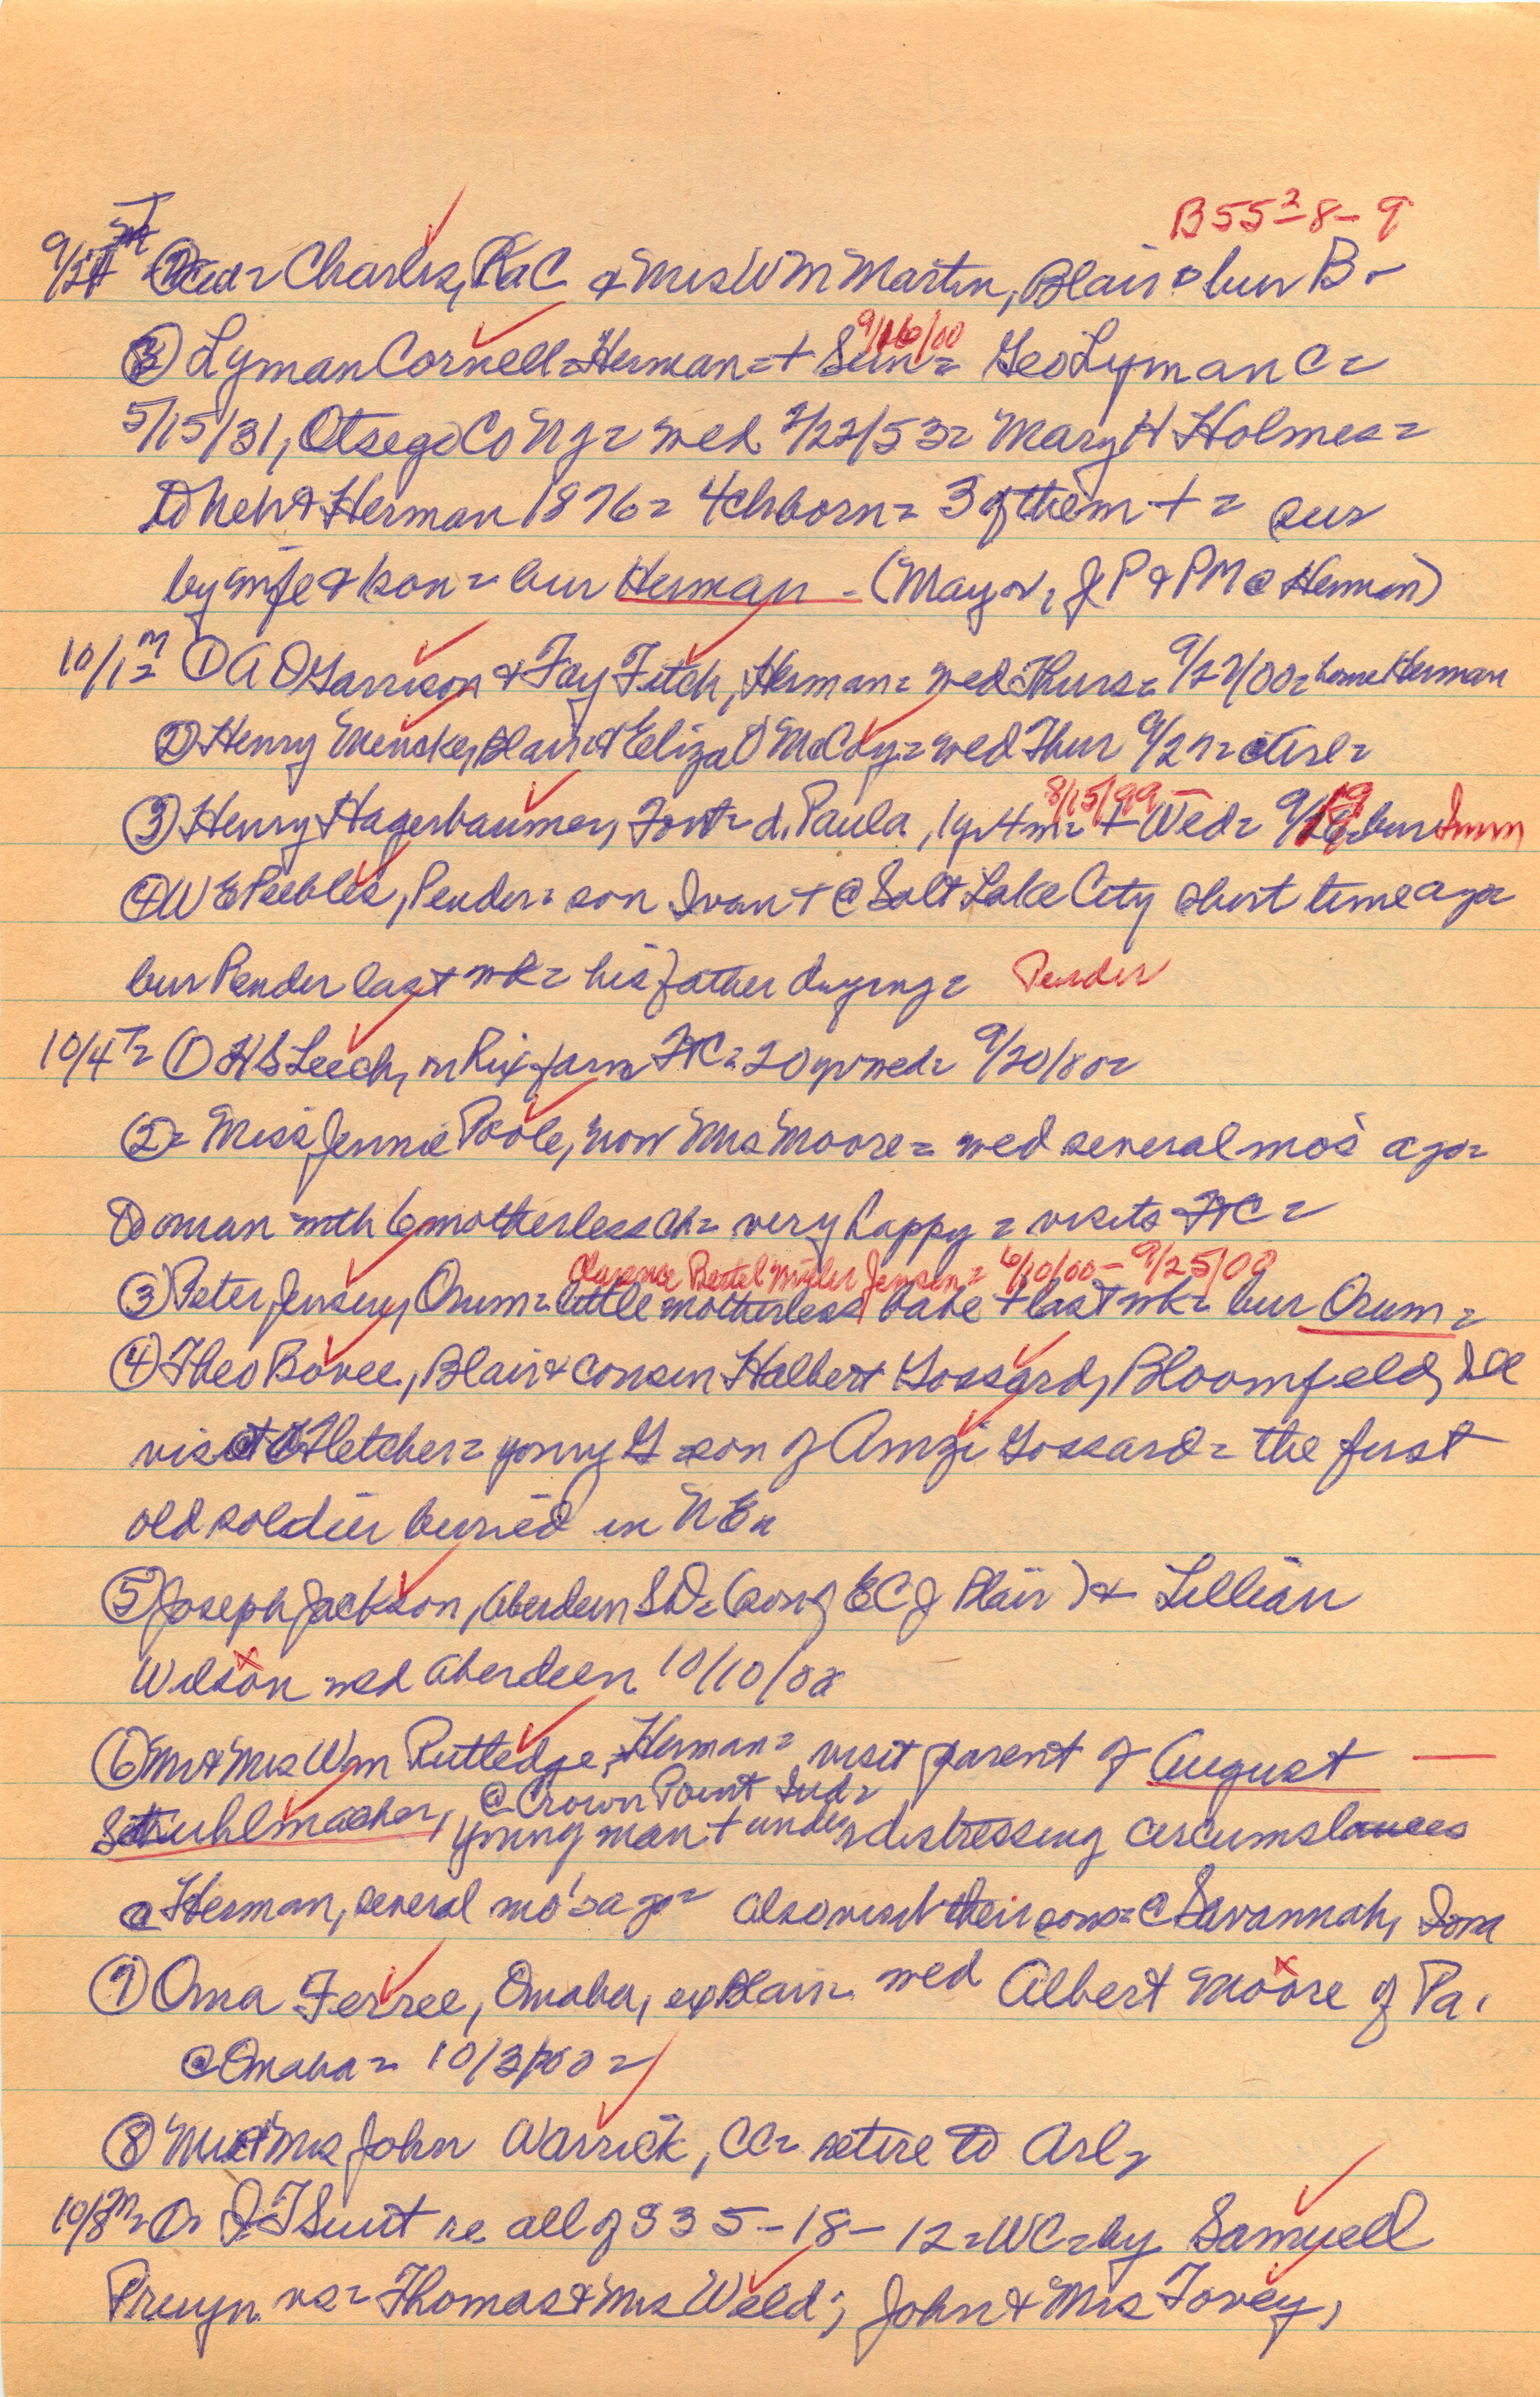 B55²-8-9
9/27 T ① Charles, KaC & Mrs WM Martin, Blair = bur B-
② Lyman Cornell = Herman = + Sun = 9/16/00 Geo Lyman C =
5/15/31, Otsego Co NY = wed 2/22/53 = Mary H Holmes =
to Neb & Herman 1876 = 4 ch born = 3 of them + = sur
by wife & son = bur Herman - (Mayor, JP & PM @ Herman)
10/1 M = ① A O Garrison & Fay Fitch, Herman = wed Thurs = 9/27/00 = home Herman
② Henry Mencke, Blair & Eliza O McCoy = wed Thur 9/27 = @ Arl =
③ Henry Hagerbaumer, Font = d. Paula, 1 yr 4 m = 8/15/99 - + Wed = 9/19 = bur Imm
④ W E Peebles, Pender = son Ivan + @ Salt Lake City short time ago =
bur Pender last wk = his father dying = Pender
10/4 T = ① H S Leech, on Rix farm FtC = 20 yr wed = 9/20/80 =
② = Miss Jennie Poole, now Mrs Moore = wed several mo's ago =
to man with 6 motherless ch = very happy = visits FtC =
Clarence Bertel Miller Jensen = 6/10/00 - 9/25/00
③ Peter Jensen, Orum = little motherless babe + last wk = bur Orum =
④ Theo Bovee, Blair & cousin Halbert Gossard, Bloomfield, Ill
visit @ Fletcher = young G = son of Amzi Gossard = the first
old soldier buried in NE =
⑤ Joseph Jackson, Aberdeen SD = (son of ECJ Blair) & Lillian
Wilson wed Aberdeen 10/10/00
⑥ Mr & Mrs Wm Rutledge, Herman = visit parent of August
@ Crown Point Ind =
Schuhlmacher, young man + under distressing circumstances
@ Herman, several mo's ago = also visit their sons = @ Savannah, Iowa
⑦ Oma Ferree, Omaha, ex Blair = wed Albert Moore of Pa.
@ Omaha = 10/3/00 =
⑧ Mr & Mrs John Warrick, CC = retire to Arl =
10/8 M = ① = Suit re all of S35-18-12 = WC = by Samuel
Pruyn vs = Thomas & Mrs Weld; John & Mrs Tovey,